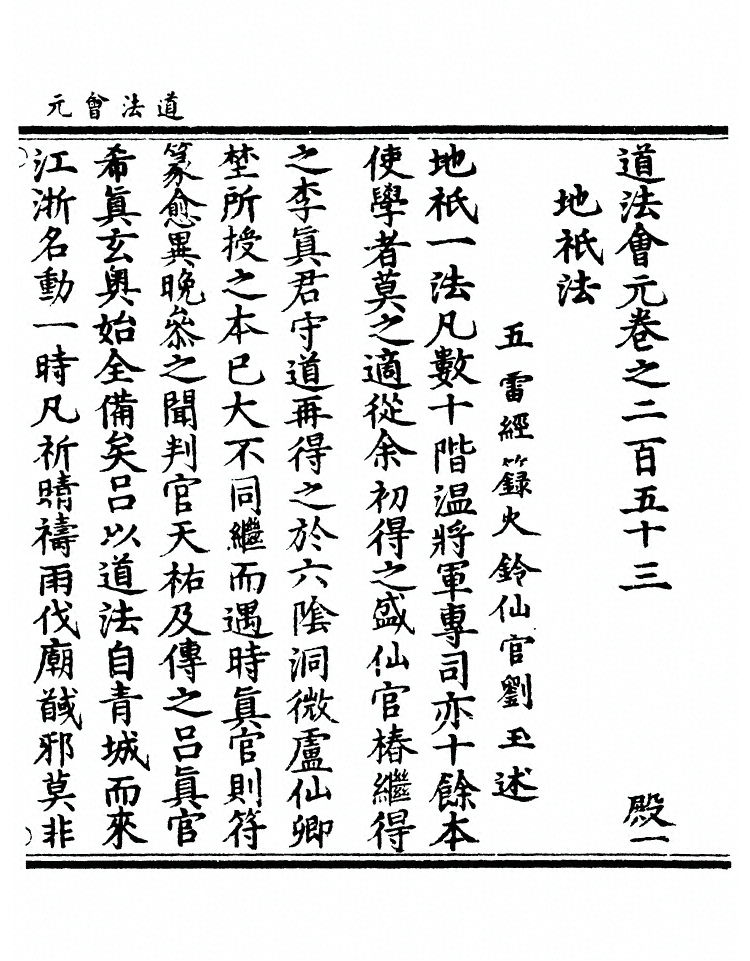 道法會元
道法會元卷之二百五十三
殿一
地祇法
五雷經籙火鈴仙官劉玉述
地祇一法凡數十階温將軍專司亦十餘本
使學者莫之適從余初得之盛仙官椿繼得
之李眞君守道再得之於六陰洞微盧仙卿
埜所授之本已大不同繼而遇時眞官則符
篆愈異晚叅之聞判官天祐及傳之吕眞官
希眞玄奥始全備矣吕以道法自青城而來
江浙名動一時凡祈晴禱雨伐廟馘邪莫非